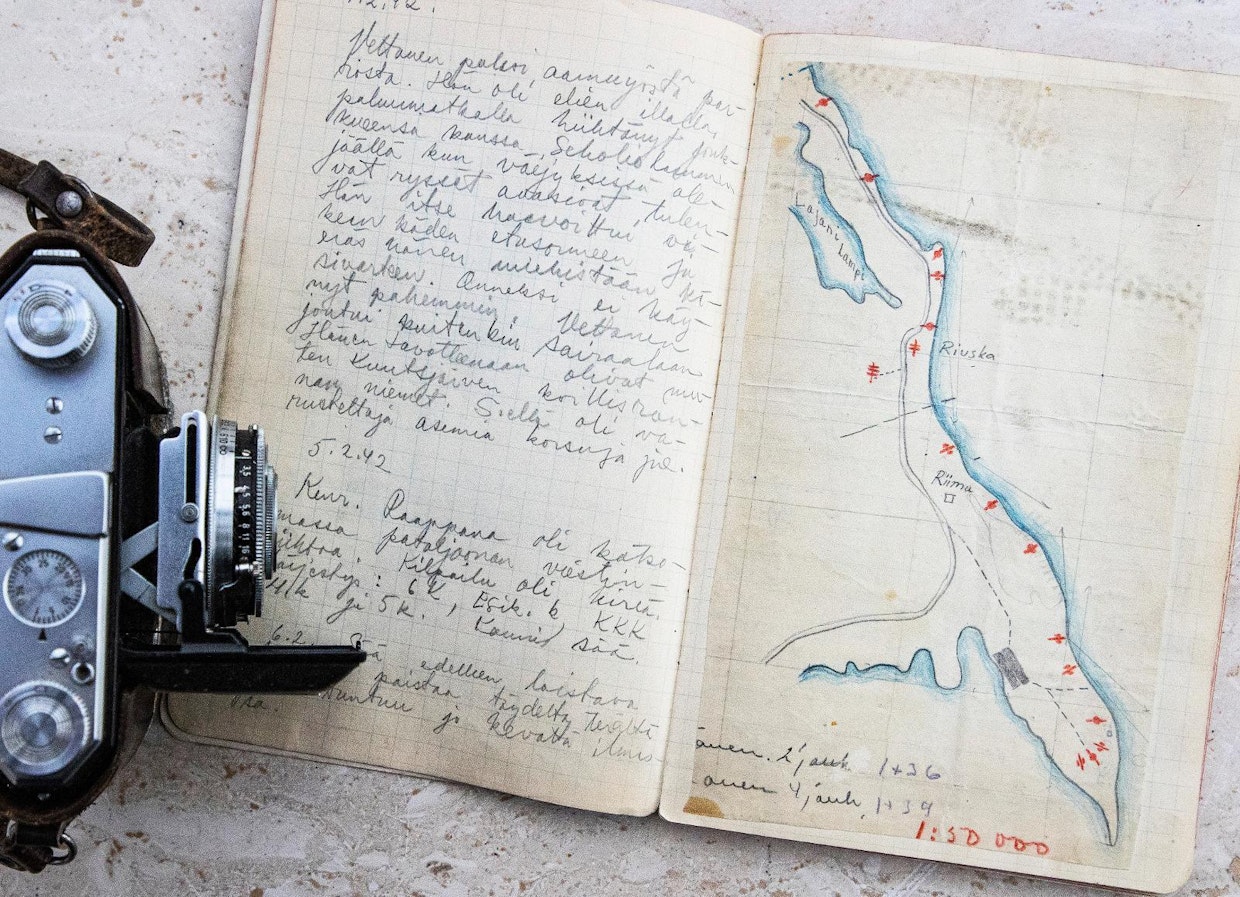 Vettanen palasi aamuyöstä par-
tiosta. Hän oli eilen illalla,
paluumatkalla hiihtänyt jouk-
kueensa kanssa
jäällä kun väijyksissä ole-
vat ryssät avasivat tulen.
Hän itse haavoittui va-
sen käden etusormeen ja
eräs hänen miehistään
Onneksi ei käy-
nyt pahemmin. Vettanen
joutui kuitenkin sairaalaan
Hänen tavoitteenaan olivat muu-
ten koillisran-
nan niemet. Siellä oli va-
rustettuja asemia korsuja jne.
5.2.42
Kenr. Raappana oli katso-
massa pataljoonan viestin-
hiihtoa. Kilpailu oli kireä.
Järjestys: 6K, Esik. k KKK
4k ja 5k. Kaunis sää.
6.2. Sää edelleen loistava
paistaa täydeltä terältä
Tuntuu jo kevättä ilmas-
sa.
Lajan Lampi
Riuska
Riima
2 jouk 1+36
4 jouk. 1+39
1:50 000